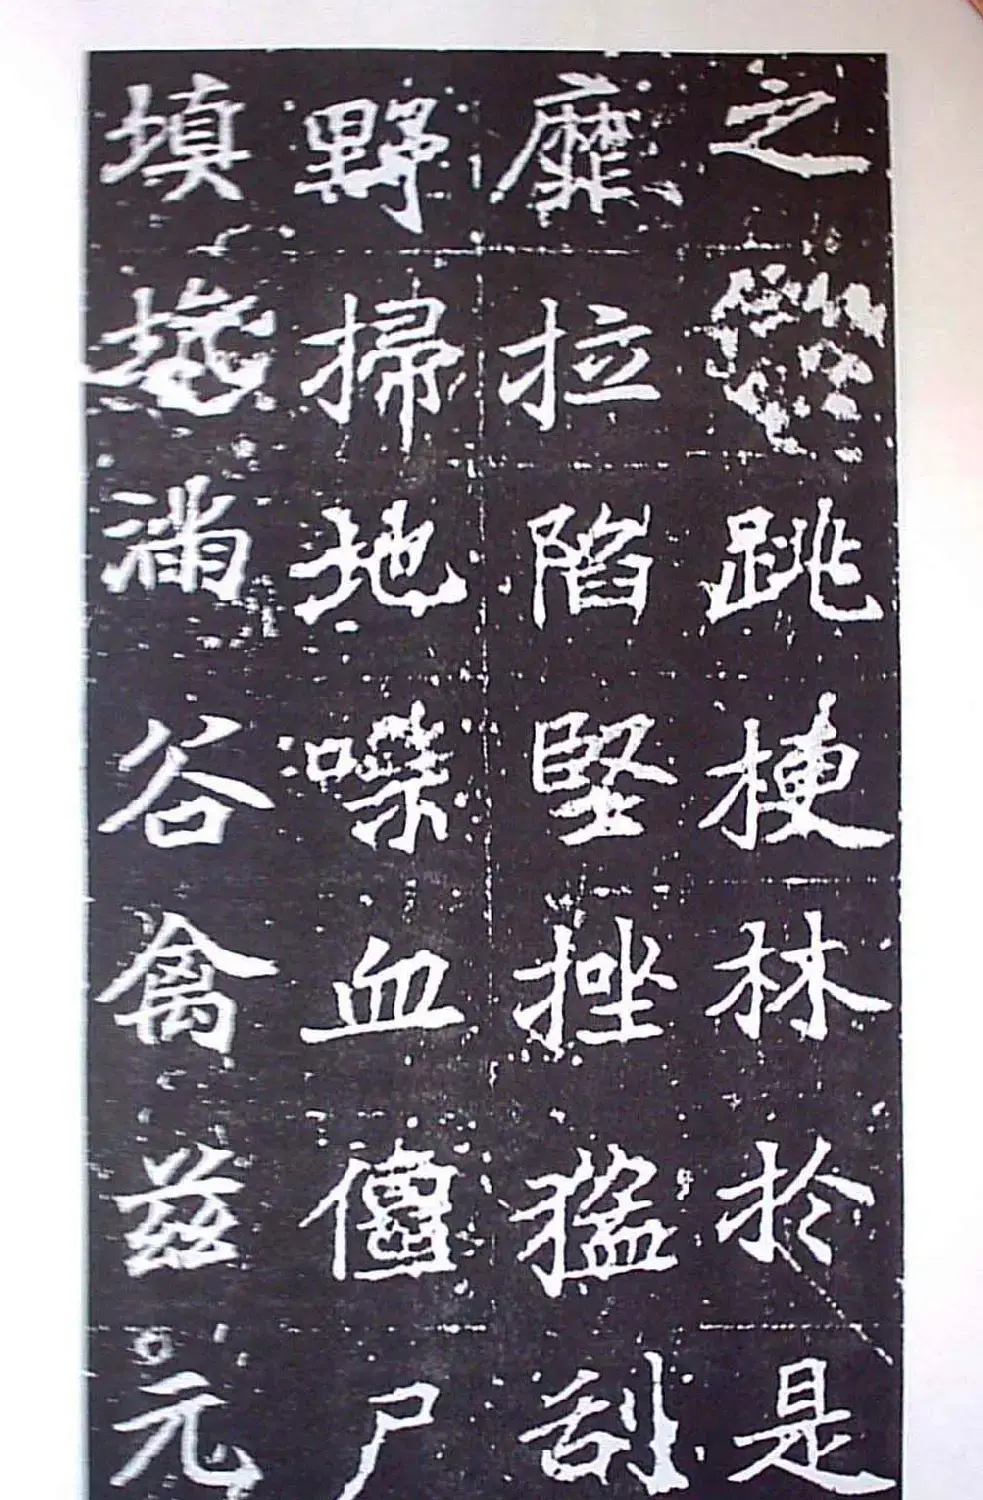 之跳梗林於是
靡拉陷堅挫猛刮
野掃地噗血僵尸
填坑滿谷禽兹元